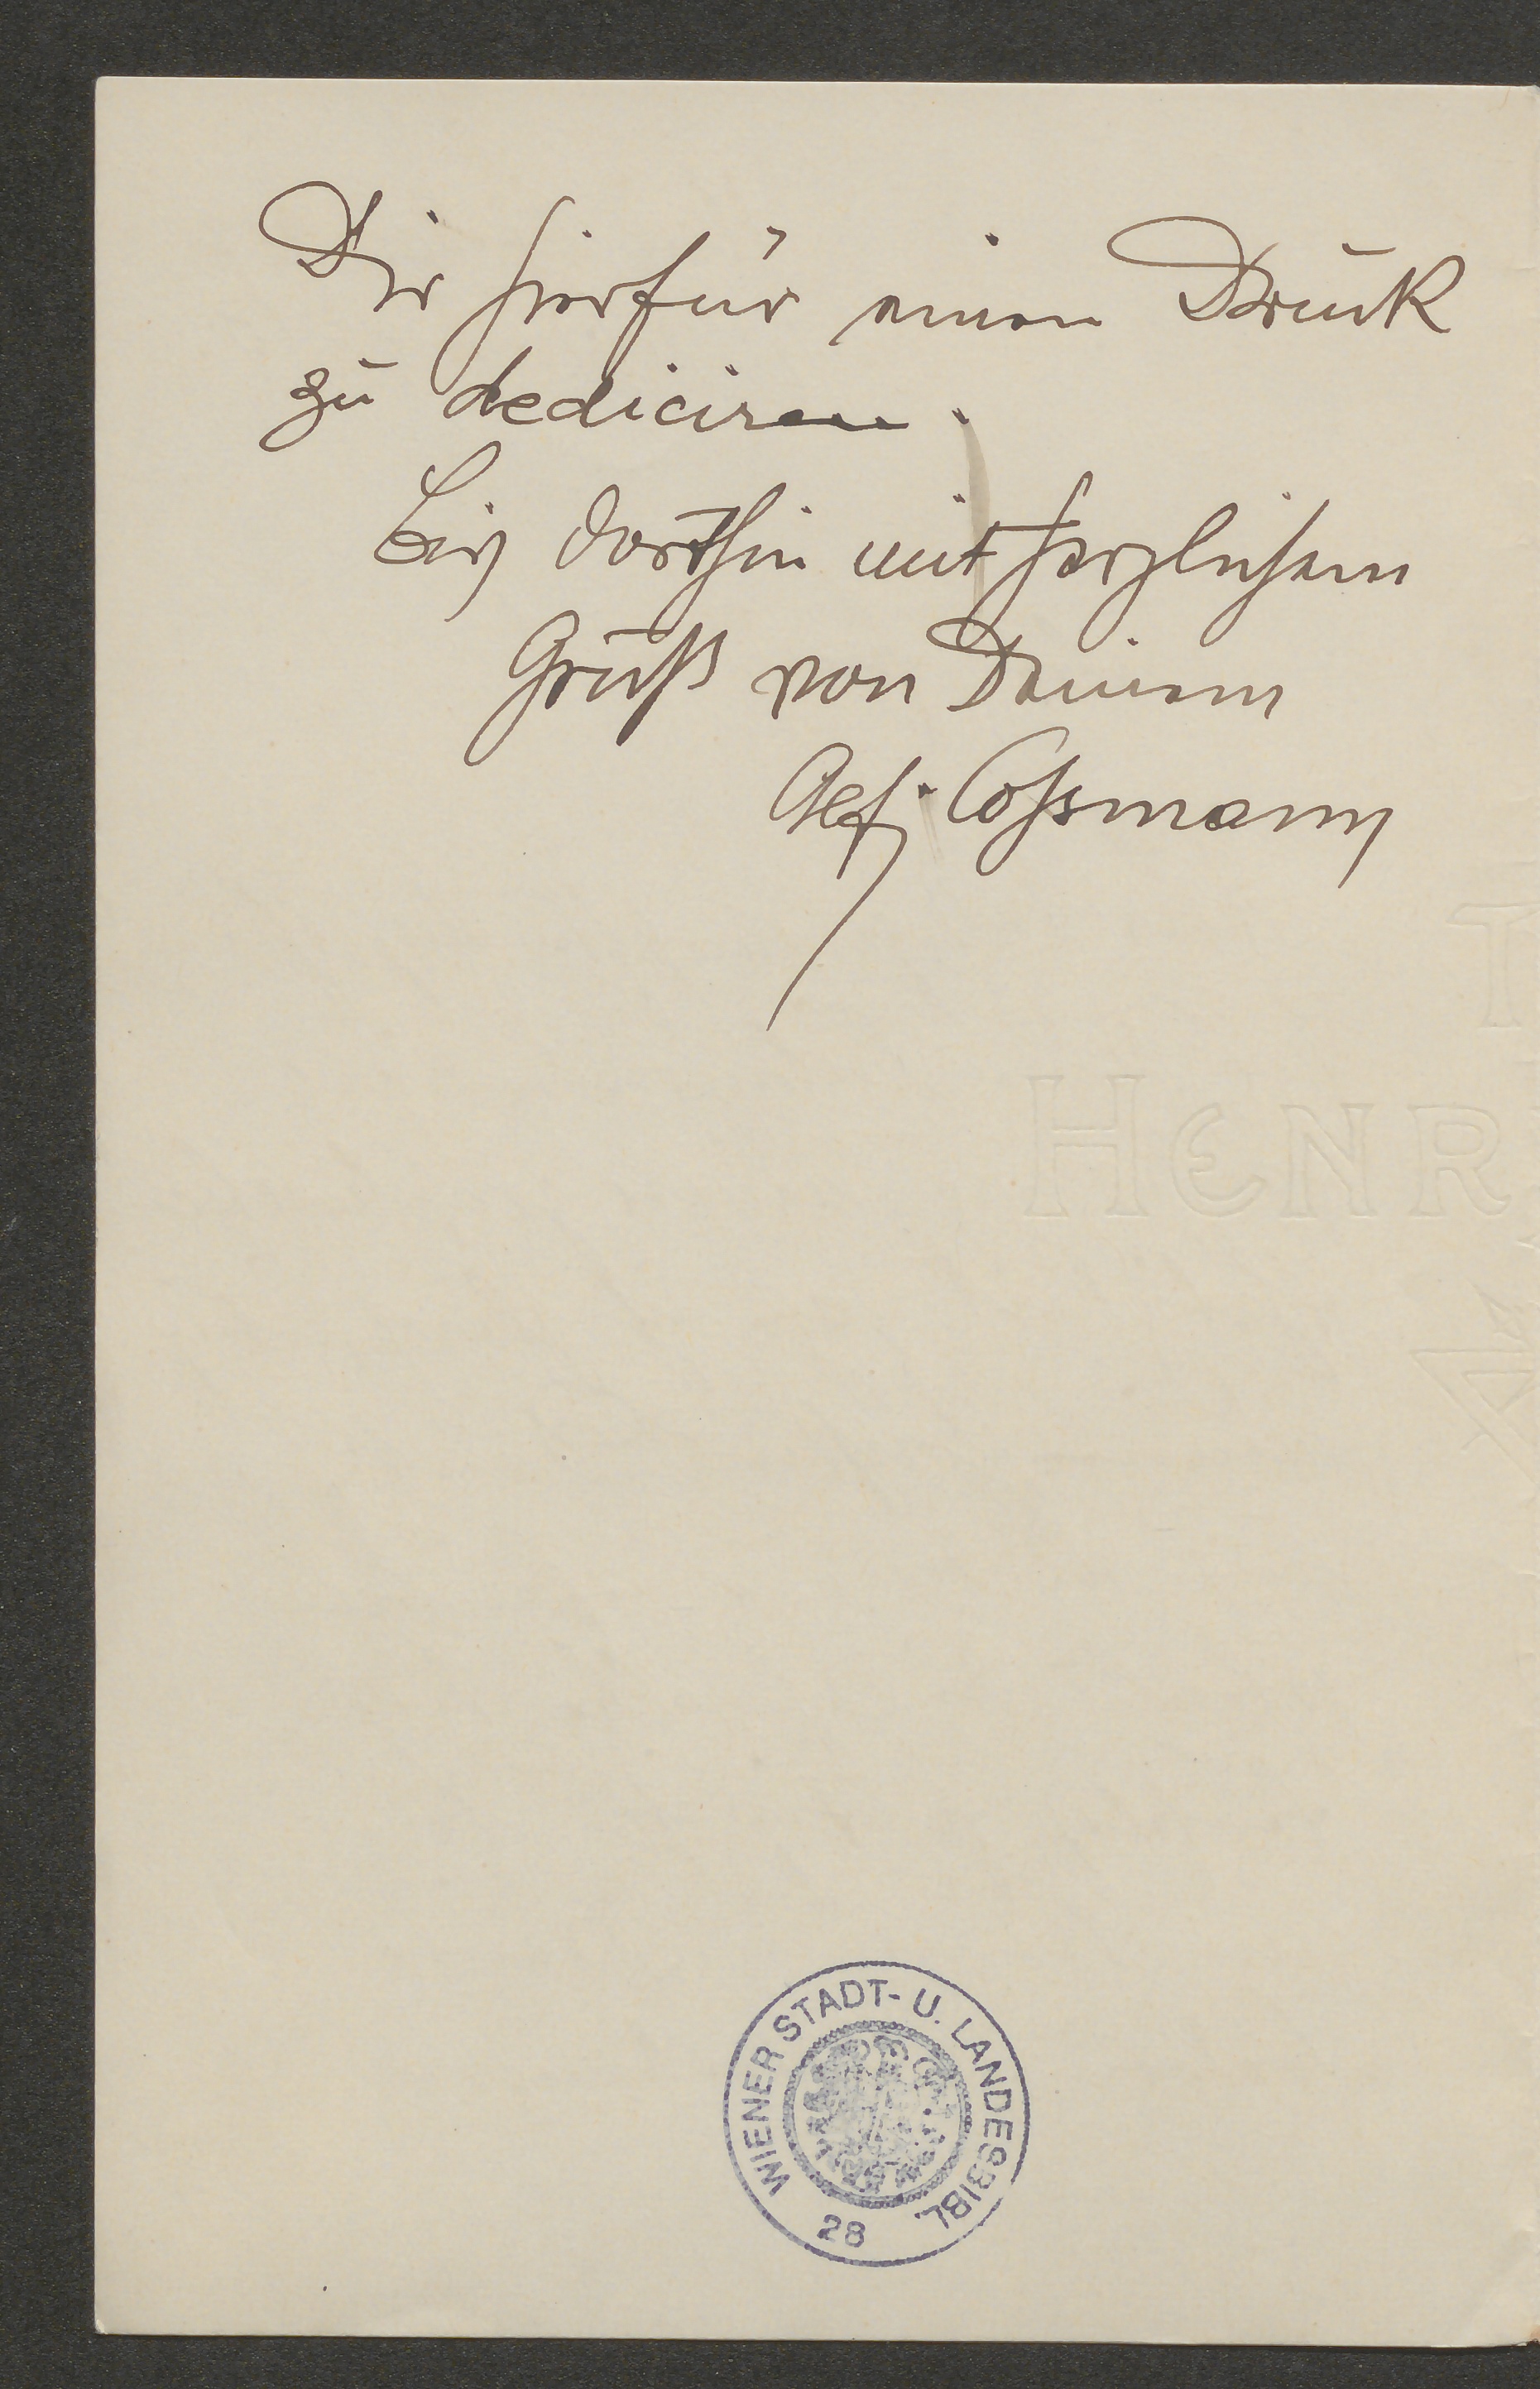 Dir hierfür einen Druck
zu dediciren.
Bis dorthin mit herzlichem
Gruß von Deinem
Alf. Coßmann
T
HENR
WIENER STADT- U. LANDESBIBL.
28